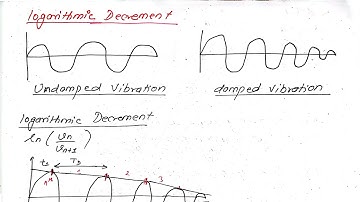 logarithmic Decrement
Undamped Vibration
damped vibration
logarithmic Decrement
ln (vn / vn+1)
t1 TD
1 2 3